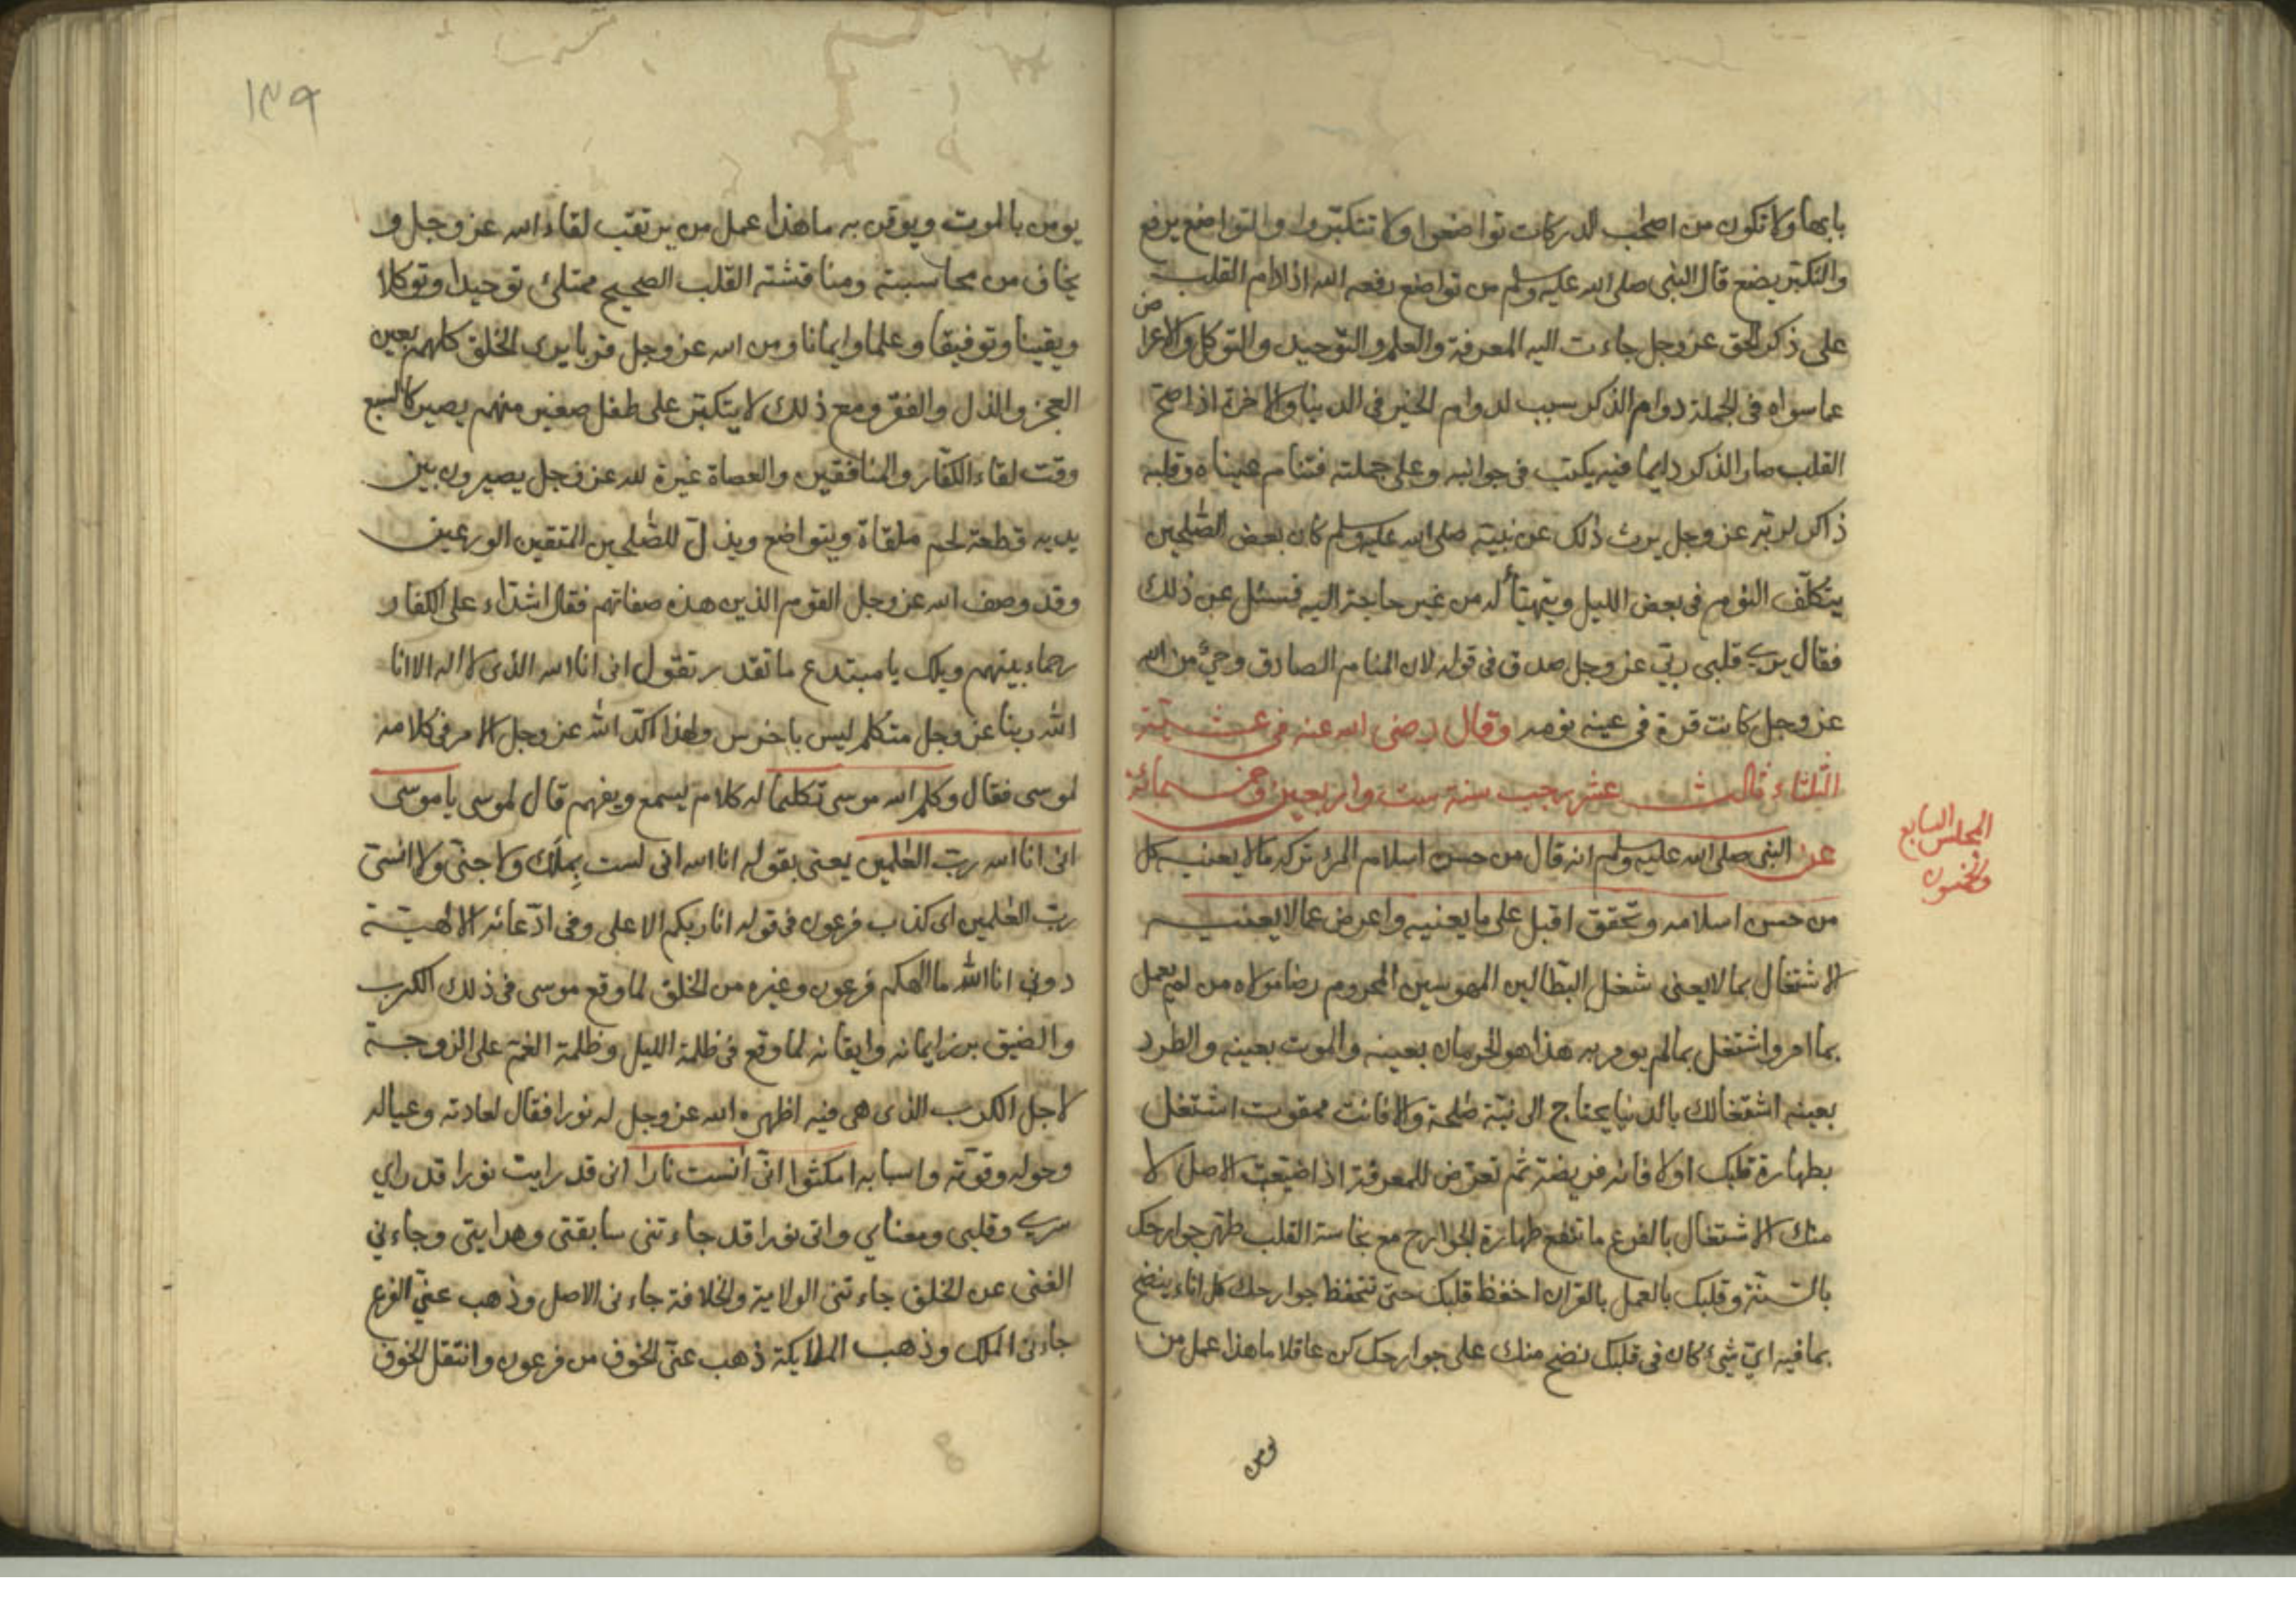 بابها ولا تكون من اصحاب الدركات تواضعوا ولا تتكبروا والتواضع يرفع
والتكبر يضع قال النبي صلى الله عليه وسلم من تواضع رفعه الله اذا دام القلب
على ذكر الحق عز وجل جاءت اليه المعرفة والعلم والتوحيد والتوكل والاعراض
عما سواه فى الجملة دوام الذكر سبب لدوام الخير فى الدنيا والاخرة اذا صح
القلب صار الذكر دايما فيه يكتب فى جوانبه وعلى جملته فتنام عيناه وقلبه
ذاكر لربه عز وجل يرث ذلك عن نبيه صلى الله عليه وسلم كان بعض الصلحين
يتكلف النوم فى بعض الليل ويتهيأ له من غير حاجة اليه فسئل عن ذلك
فقال يرى قلبى ربي عز وجل صدق فى قوله لان المنام الصادق وحيٌ من الله
عز وجل كانت قرة فى عينه نومه وقال رضى الله عنه فى عشية
الثلثاء ثالث عشر رجب سنة ست واربعين وخمسمائة
المجلس السابع
والخمسون
عن النبى صلى الله عليه وسلم انه قال من حسن اسلام المرء تركه مالا يعنيه كل
من حسن اسلامه وتحقق اقبل على ما يعنيه واعرض عما لا يعنيه
الاشتغال بما لا يعنى شغل البطالين المهوسين المحروم رضا مولاه من لم يعمل
بما امر واشتغل بما لم يومر به هذا هو الحرمان بعينه والموت بعينه والطرد
بعينه اشتغالك بالدنيا يحتاج الى نية صلحة والا فانت ممقوت اشتغل
بطهارة قلبك اولا فانه فريضة ثم تعرض للمعرفة اذا ضيعت الاصل لا
منك الاشتغال بالفرع ما تنفع طهارة الجوارح مع نجاسة القلب طهر جوارحك
بالسنة وقلبك بالعمل بالقران احفظ قلبك حتى تحفظ جوارحك كل اناء ينضح
بما فيه اي شئ كان فى قلبك نضح منك على جوارحك كن عاقلا ما هذا عمل من
يومن
١٣٩
يومن بالموت ويوقن به ما هذا عمل من يرتقب لقاء الله عز وجل و
يخاف من محاسبته ومناقشته القلب الصحيح ممتلئ توحيدا وتوكلا
ويقينا وتوفيقا وعلما وايمانا ومن الله عز وجل قربا يرى الخلق كلهم بعين
العجز والذل والفقر ومع ذلك لا يتكبر على طفل صغير منهم يصير كالسبع
وقت لقاء الكفار والمنافقين والعصاة غيرة لله عز وجل يصيرون بين
يديه قطعة لحم ملقاة ويتواضع ويذل للصلحين المتقين الورعين
وقد وصف الله عز وجل القوم الذين هذه صفاتهم فقال اشداء على الكفار
رحماء بينهم ويلك يا مبتدع ما تقدر تقول انى انا الله الذى لا اله الا انا
الله ربنا عز وجل متكلم ليس باخرس ولهذا اكد الله عز وجل الامر فى كلامه
لموسى فقال وكلم الله موسى تكليما له كلام يسمع ويفهم قال لموسى يا موسى
انى انا الله رب العلمين يعنى بقوله انا الله انى لست بملك ولا جني ولا انسي
رب العلمين اى كذب فرعون فى قوله انا ربكم الاعلى وفى ادعائه الالهية
دوني انا الله ما الهكم فرعون وغيره من الخلق لما وقع موسى فى ذلك الكرب
والضيق برز ايمانه وايقانه لما وقع فى ظلمة الليل وظلمة الغم على الزوجة
لاجل الكرب الذى هى فيه اظهر الله عز وجل له نورا فقال لعادته وعياله
وحوله وقوته واسبابه امكثوا اني انست نارا انى قد رايت نورا قد راي
سري وقلبى ومعناي وانى نورا قد جاءتنى سابقتى وهدايتى وجاءني
الغنى عن الخلق جاءتنى الولاية والخلافة جاءنى الاصل وذهب عني الفرع
جاءنى الملك وذهب الملايكة ذهب عني الخوف من فرعون وانتقل الخوف